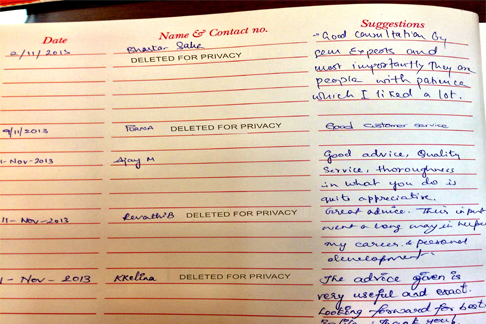 Date Name & Contact no. Suggestions
2/11/2013 Bhastar Sake Good Consultation by
DELETED FOR PRIVACY
Experts and
most importantly They are
people with patience
which I liked a lot.
9/11/2013 DELETED FOR PRIVACY Good Customer Service
-Nov-2013 Ajay M Good advice, Quality
Service, thoroughness
in what you do is
quite appreciative.
-Nov-2013 Revathi B DELETED FOR PRIVACY Great advice. Their input
went a long way in
my career & personal
development.
-Nov-2013 DELETED FOR PRIVACY The advice given is
very useful and exact.
Looking forward for best
Thank you.